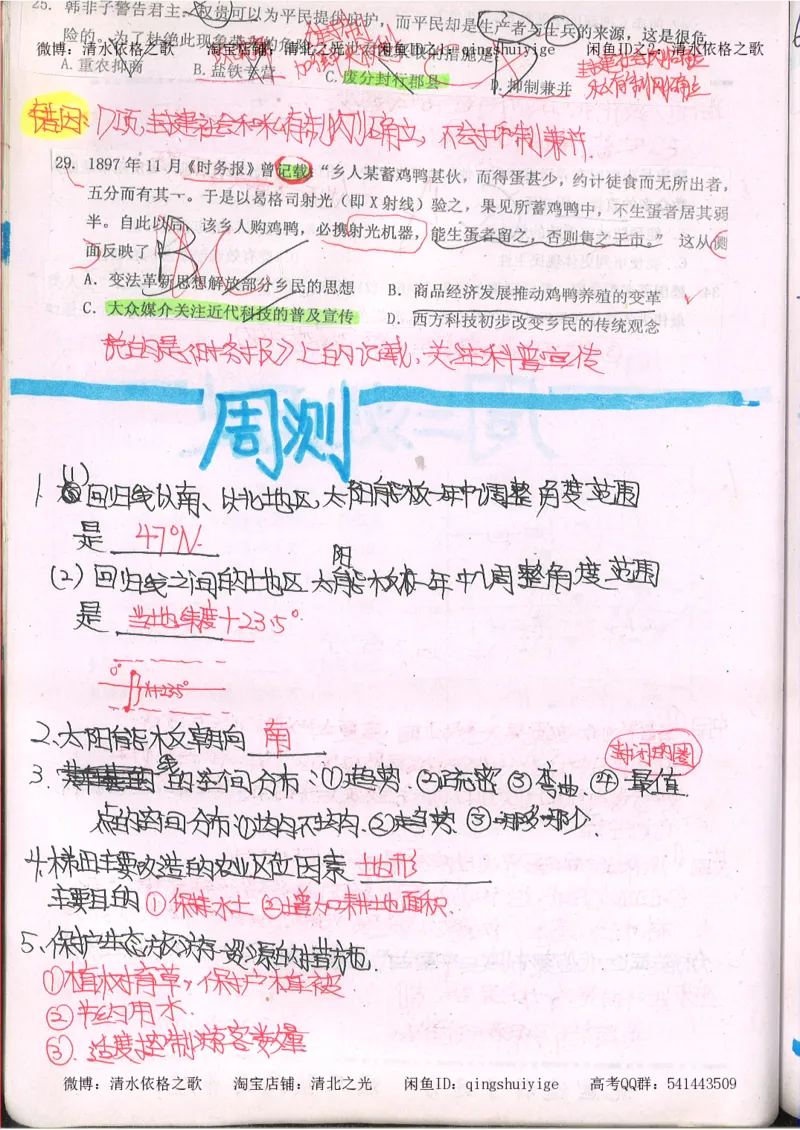 25. 韩非子警告君主：权贵可以为平民提供庇护，而平民却是生产者与士兵的来源，这是很危
险的。为了杜绝此现象带来的危险
微博：清水依格之歌 淘宝店铺：清北之光 闲鱼ID之1：qingshuiyige 闲鱼ID之2：清水依格之歌
A.重农抑商 B.盐铁专营 C.废分封行郡县 D.抑制兼并
错因：D项，封建社会和私有制刚刚确立，不会抑制兼并.
29. 1897年11月《时务报》曾记载：“乡人某蓄鸡鸭甚伙，而得蛋甚少，约计徒食而无所出者，
五分而有其一。于是以曷格司射光（即X射线）验之，果见所蓄鸡鸭中，不生蛋者居其弱
半。自此以后，该乡人购鸡鸭，必携射光机器，能生蛋者留之，否则售之于市。” 这从侧
面反映了
A. 变法革新思想解放部分乡民的思想 B. 商品经济发展推动鸡鸭养殖的变革
C. 大众媒介关注近代科技的普及宣传 D. 西方科技初步改变乡民的传统观念
说的是《时务报》上的记载，关注科普宣传
周测
1. (1)回归线以南、以北地区，太阳能板一年中调整角度范围
是 47°N.
(2)回归线之间的地区太阳能板一年中调整角度范围
是 当地纬度+23.5°.
0°
2、太阳能板朝向 南
封闭的圈
3. 线的空间分布：①趋势.②疏密③弯曲.④最值.
点的空间分布①均匀不均匀.②趋势.③哪多哪少
4.梯田主要改造的农业区位因素 地形
主要目的①保持水土 ②增大耕地面积.
5、保护生态旅游资源的措施.
①植树育草，保护植被
②节约用水.
③.适度控制游客数量
微博：清水依格之歌 淘宝店铺：清北之光 闲鱼ID：qingshuiyige 高考QQ群：541443509